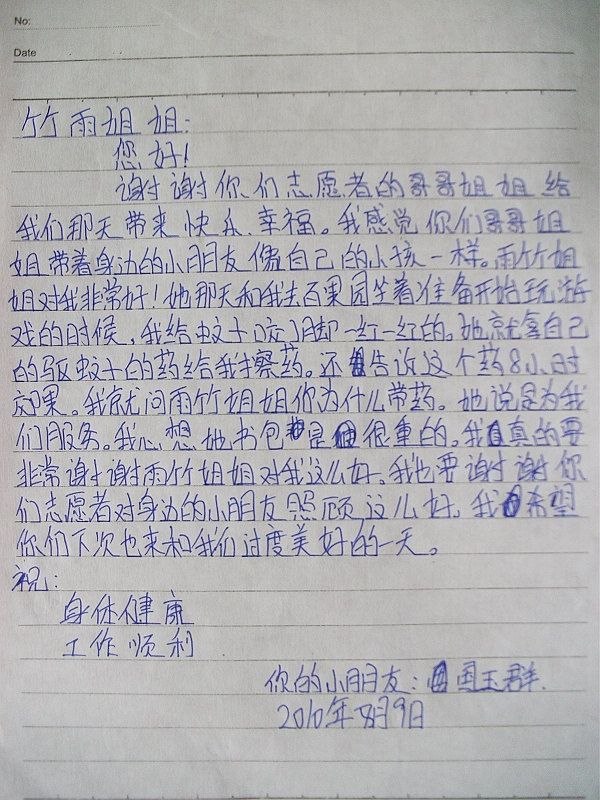 No:
Date
竹雨姐姐:
您好!
谢谢你们志愿者的哥哥姐姐给
我们那天带来快乐、幸福。我感觉你们哥哥姐
姐带着身边的小朋友像自己的小孩一样。雨竹姐
姐对我非常好!她那天和我去百果园坐着准备开始玩游
戏的时候,我给蚊子咬了脚一红一红的。她就拿自己
的驱蚊子的药给我擦药。还告诉这个药8小时
效果。我就问雨竹姐姐你为什么带药。她说是为我
们服务。我心想她书包是很重的。我真的要
非常谢谢雨竹姐姐对我这么好。我也要谢谢你
们志愿者对身边的小朋友照顾这么好。我希望
你们下次也来和我们过度美好的一天。
祝:
身体健康
工作顺利
你的小朋友:国玉群.
2010年8月9日